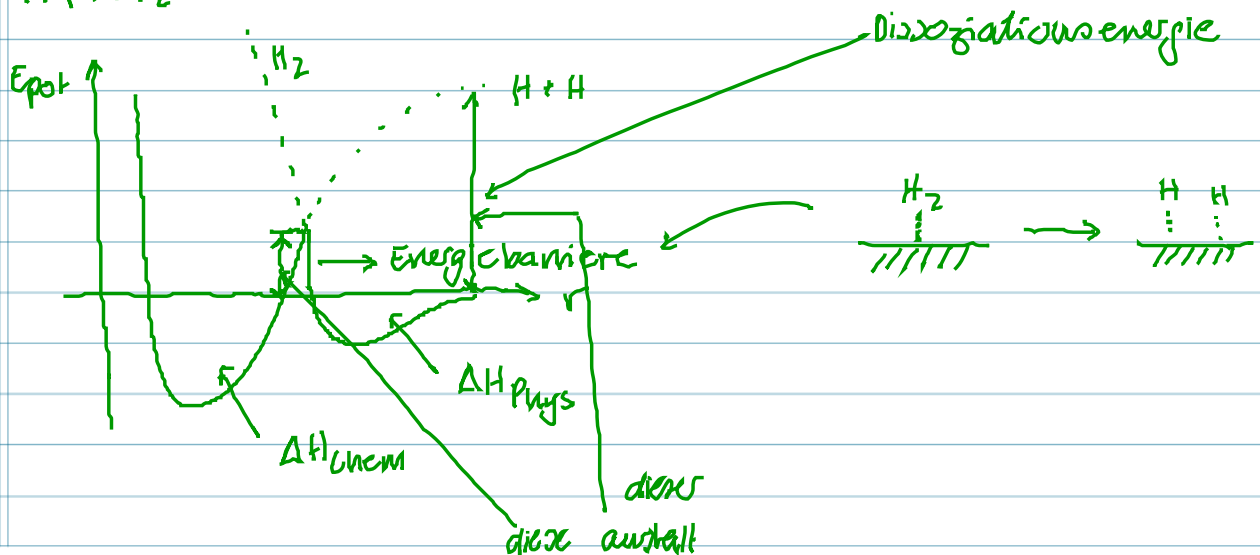 Dissoziationsenergie
H₂
Epot
H + H
H₂
H H
Energiebarriere
r
ΔHPhys
ΔHChem
dieser
diese anstatt